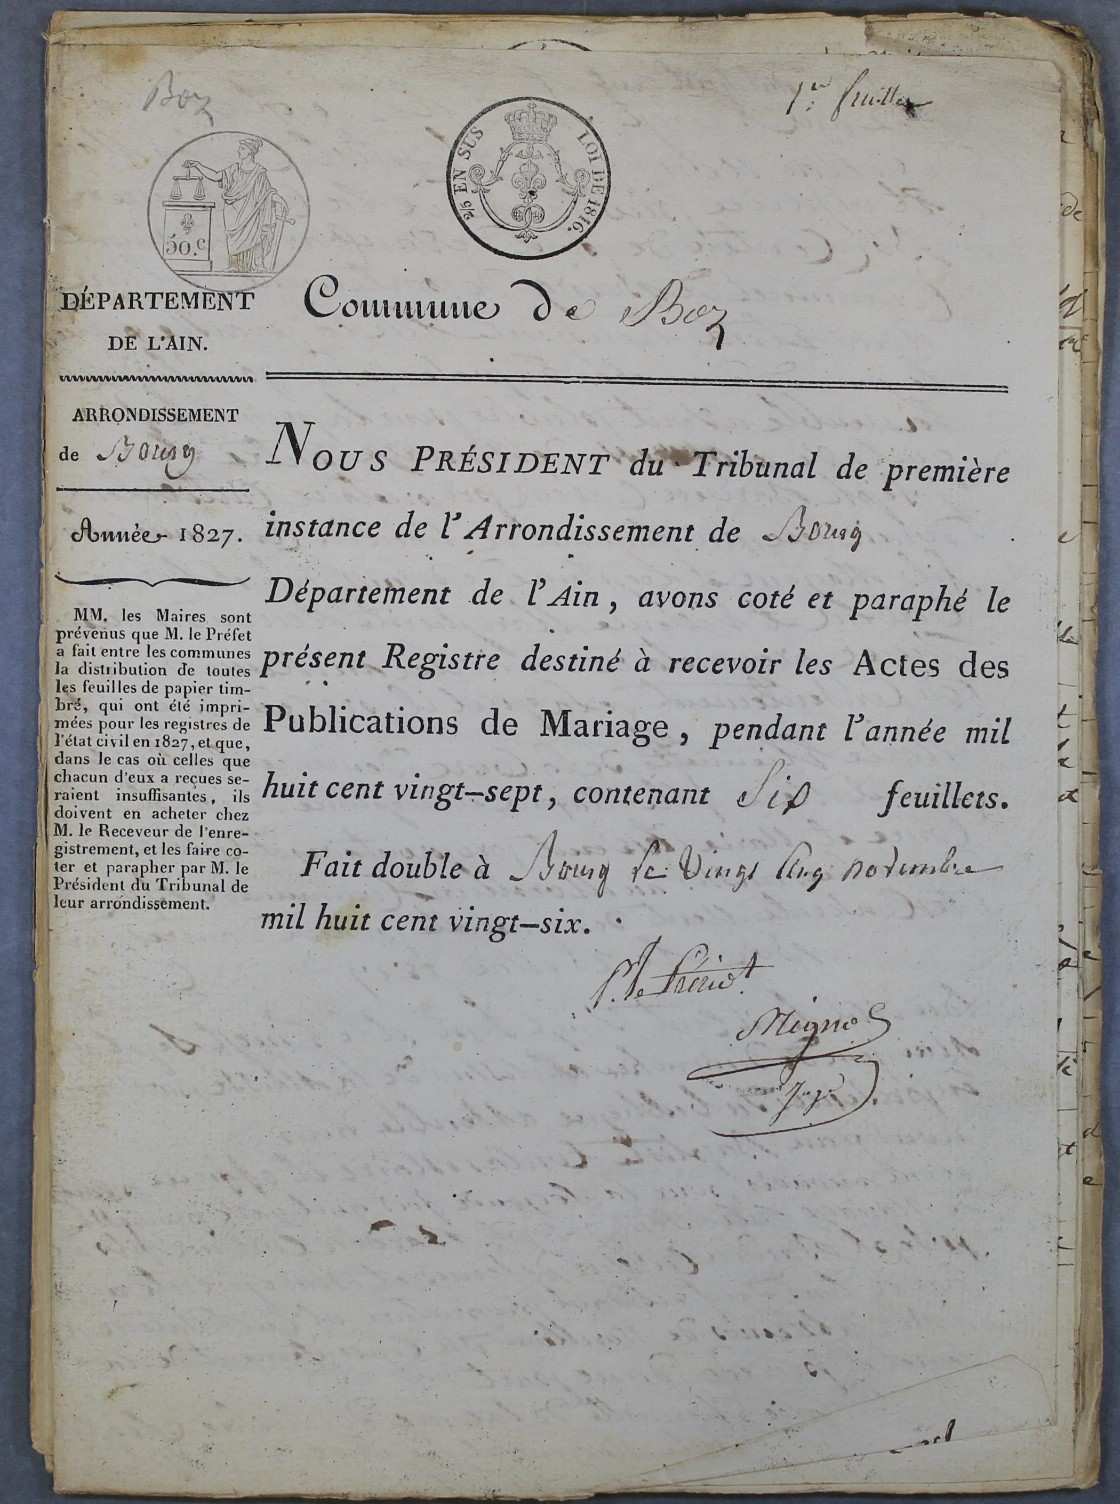 Boz
1er feuillet
2/5 EN SUS LOI DE 1816.
50.c
DÉPARTEMENT
DE L'AIN.
Commune de Boz
ARRONDISSEMENT
de Bourg
Année 1827.
MM. les Maires sont
prévenus que M. le Préfet
a fait entre les communes
la distribution de toutes
les feuilles de papier tim-
bré, qui ont été impri-
mées pour les registres de
l'état civil en 1827, et que,
dans le cas où celles que
chacun d'eux a reçues se-
raient insuffisantes, ils
doivent en acheter chez
M. le Receveur de l'enre-
gistrement, et les faire co-
ter et parapher par M. le
Président du Tribunal de
leur arrondissement.
NOUS PRÉSIDENT du Tribunal de première
instance de l'Arrondissement de Bourg
Département de l'Ain, avons coté et paraphé le
présent Registre destiné à recevoir les Actes des
Publications de Mariage, pendant l'année mil
huit cent vingt-sept, contenant Six feuillets.
Fait double à Bourg le Vingt Cinq novembre
mil huit cent vingt-six.